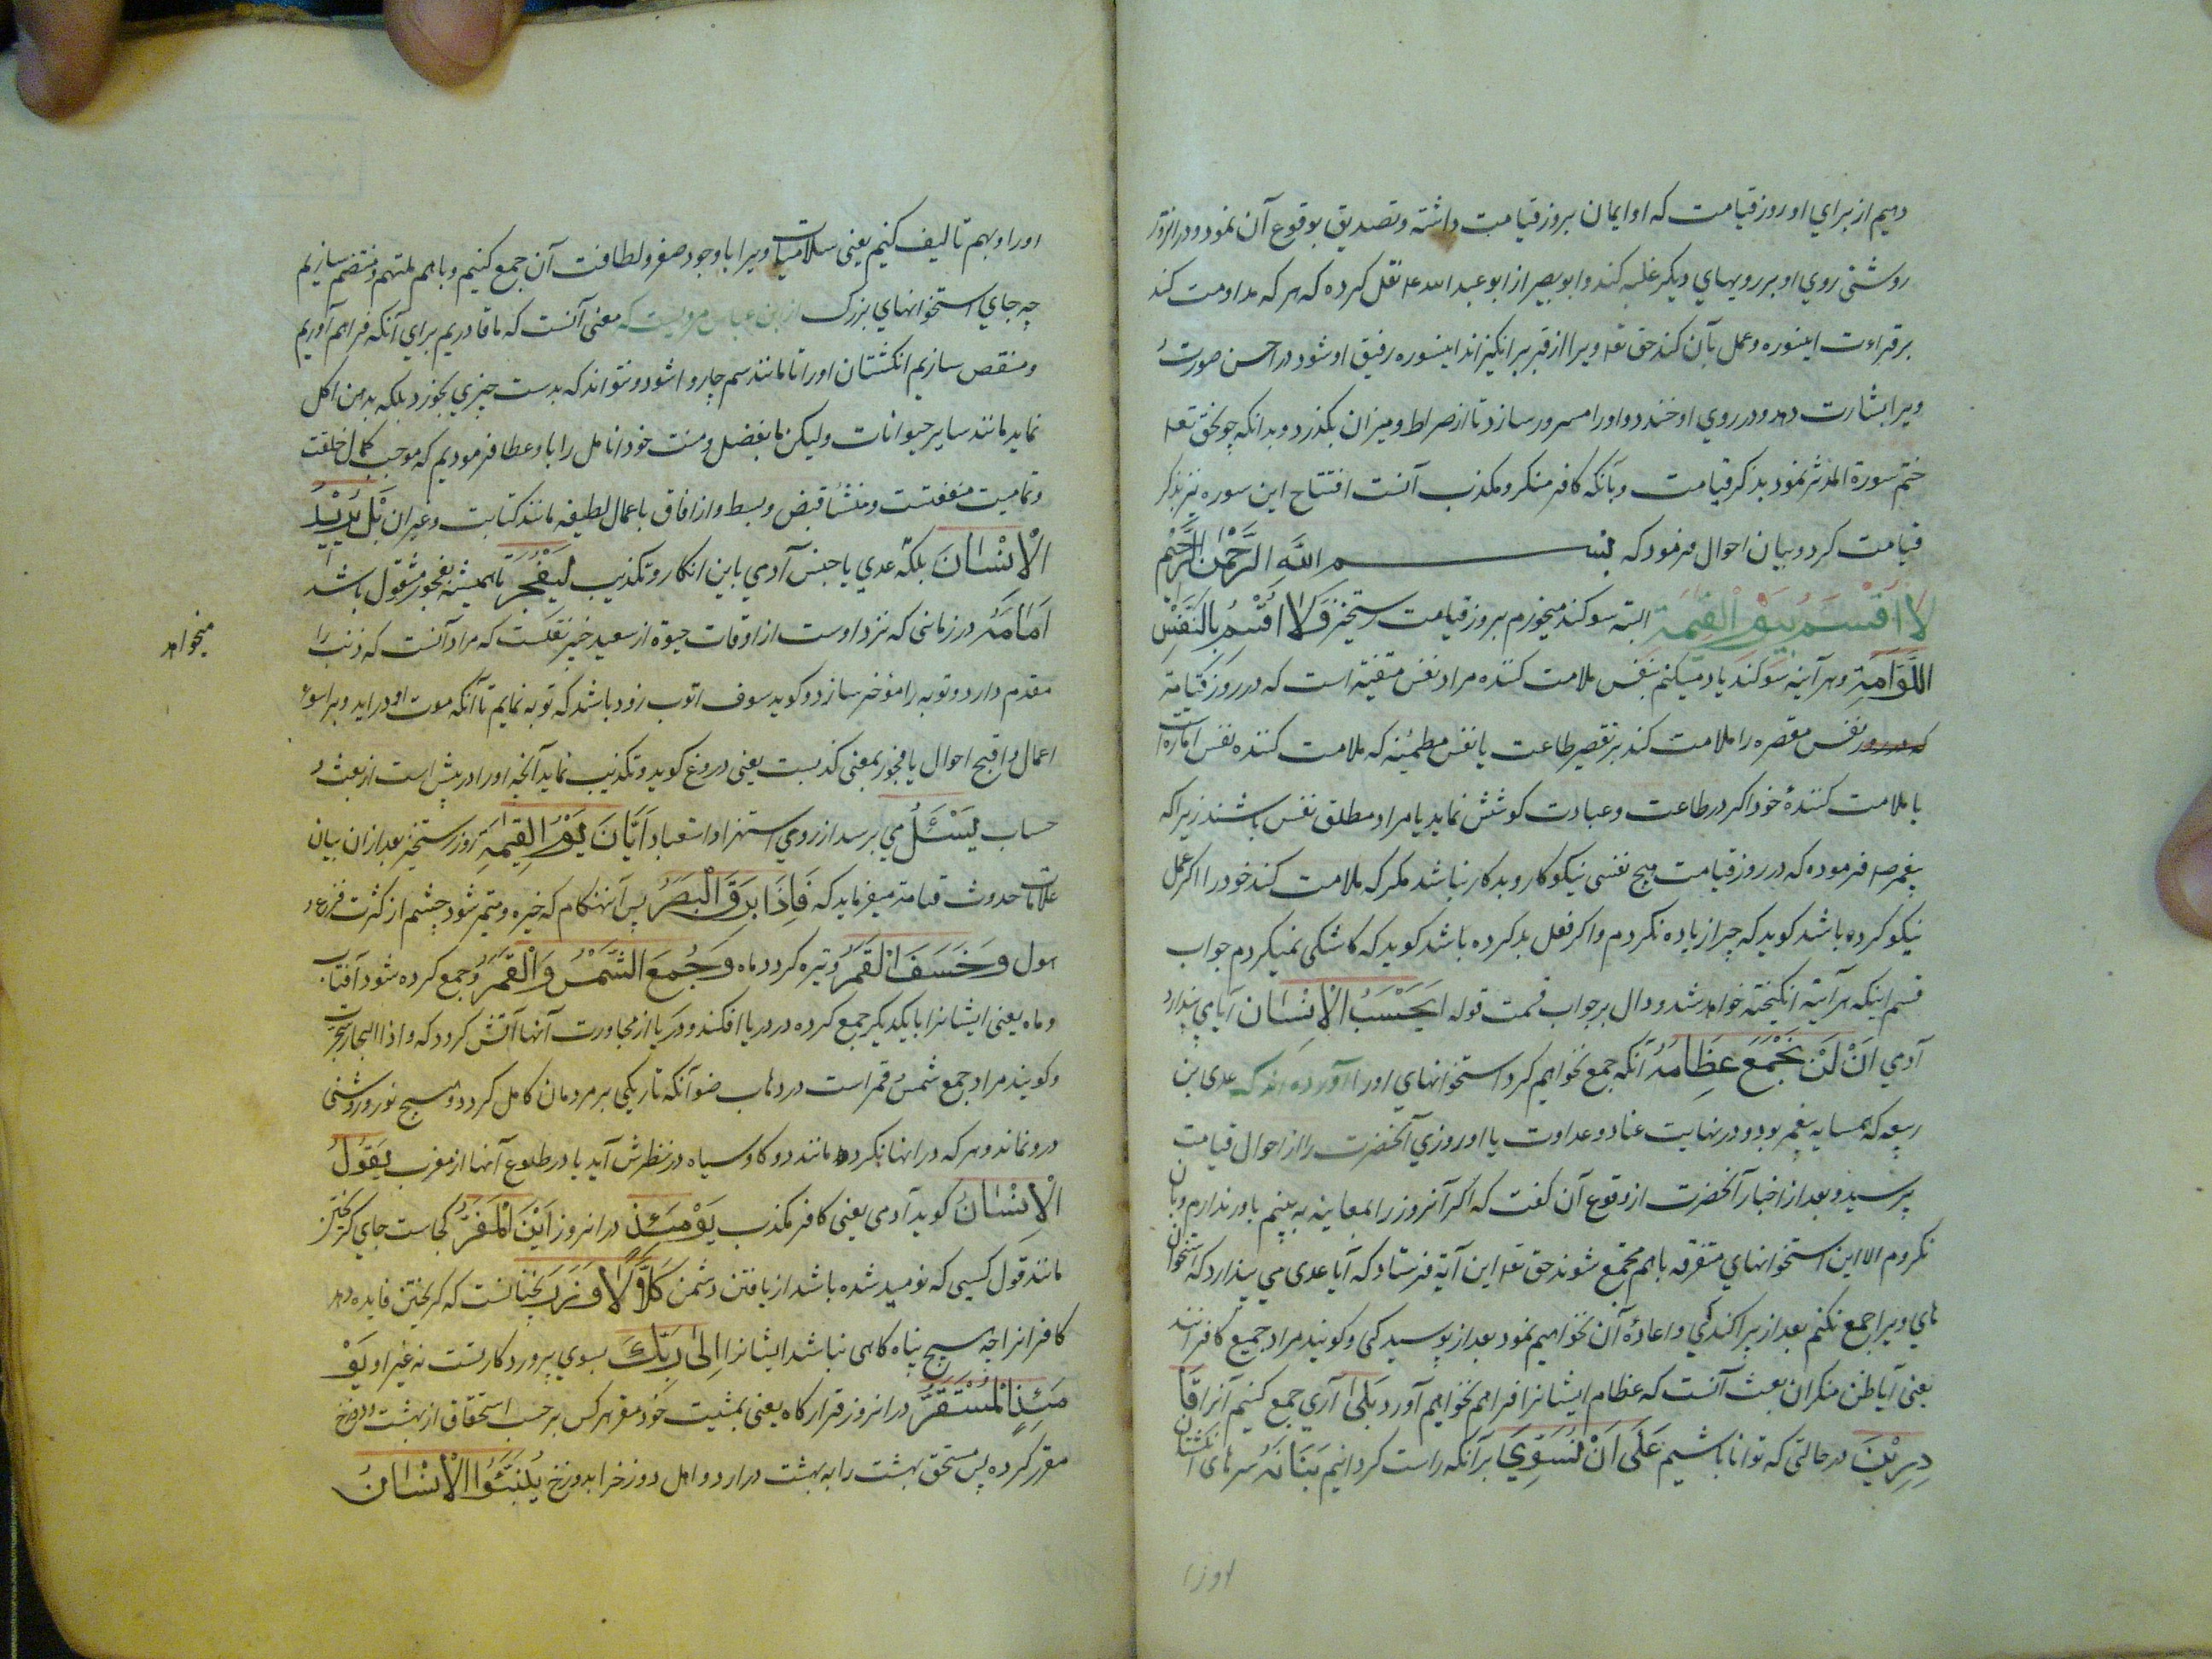 دهیم از برای او روز قیامت که او ایمان بروز قیامت داشته و تصدیق بوقوع آن نمود و در انروز
روشنی روی او بر رویهای دیکر غلبه کند و ابو بصیر از ابو عبد الله ع نقل کرده که هر که مداومت کند
بر قراوت اینسوره و عمل بآن کند حق تع ویرا از قبر بر انکیزاند اینسوره رفیق او شود در احسن صورت و
ویرا بشارت دهد و در روی او خندد و او را مسرور سازد تا از صراط و میزان بکذرد و بدانکه چو نحق تع
ختم سورة المدثر نمود بذکر قیامت و بآنکه کافر منکر و مکذب آنست افتتاح این سوره نیز بذکر
قیامت کرد و بیان احوال فرمود که بسم الله الرحمن الرحیم
لا اقسم بیوم القیمة البته سوکند میخورم بروز قیامت ستخیز ولا اقسم بالنفس
اللوامة و هر آینه سوکند یاد میکنم بنفس ملامت کننده مراد نفس متقیه است که در روز قیامة
نفس مقصره را ملامت کند بر تقصیر طاعت یا نفس مطمئنه که ملامت کننده نفس اماره است
یا ملامت کنندهٔ خود اکر در طاعت و عبادت کوشش نماید یا مراد مطلق نفس باشند زیرا که
پیغمبر ص فرموده که در روز قیامت هیچ نفسی نیکوکار و بدکار نباشد مکر که ملامت کند خود را اکر عمل
نیکو کرده باشد کوید که چرا زیاده نکردم و اکر فعل بد کرده باشد کوید که کاشکی نمیکردم جواب
قسم اینکه هر آینه انکیخته خواهد شد و دال بر جواب قسمت قوله ایحسب الانسان آیا می پندارد
آدمی ان لن نجمع عظامه آنکه جمع نخواهیم کرد استخوانهای او را آورده اند که عدی بن
ربیعه که همسایه پیغمبر بود و در نهایت عناد و عداوت با او روزی آنحضرت را از احوال قیامت
پرسید و بعد از اخبار آنحضرت از وقوع آن کفت که اکر آنروز را بمعاینه به بینم باور ندارم و بان
نکروم الا این استخوانهای متفرقه باهم مجتمع شوند حق تع این آیة فرستاد که آیا عدی می پندارد که استخوان
های ویرا جمع نکنم بعد از پراکندکی و اعادهٔ آن نخواهیم نمود بعد از پوسیدکی و کویند مراد جمیع کافرانند
یعنی آیا ظن منکران بعث آنست که عظام ایشانرا فراهم نخواهیم آورد بلی آری جمع کنیم آنرا قا
درین در حالتی که توانا باشیم علی ان نسوی بر آنکه راست کردانیم بنانه سرهای انکشتان
اورا و بهم تالیف کنیم یعنی سلامیات ویرا با وجود صغر و لطافت آن جمع کنیم و باهم ملتهم و منتضم سازیم
چه جای استخوانهای بزرک از ابن عباس مرویست که معنی آنست که ما قادریم برای آنکه فراهم آوریم
و منقص سازیم انکشتان او را تا مانند سم چاروا شود و نتواند که بدست چیزی بخورد بلکه بدهن اکل
نماید مانند سایر حیوانات ولیکن ما بفضل و منت خود انامل را باو عطا فرمودیم که موجب کمال خلقت
و تمامیت منفعتست و منشأ قبض و بسط و ازافاق باعمال لطیفه مانند کتابت و غیر ان بل یرید
الانسان بلکه عدی یا جنس آدمی باین انکار و تکذیب لیفجر تا همیشه بفجور مشغول باشد
امامه در زمانی که نزد اوست از اوقات حیوة از سعید جبیر نقلست که مراد آنست که ذنب را
میخواهد
مقدم دارد و توبه را مؤخر سازد و کوید سوف اتوب زود باشد که توبه نمایم تا آنکه موت او دراید و بر اسوء
اعمال و اقبح احوال یا فجور بمعنی کذبست یعنی دروغ کوید و تکذیب نماید آنچه او را در پیش است از بعث و
حساب یسئل می پرسد از روی استهزا و استبعاد ایان یوم القیمة روز رستخیز بعد ازان بیان
علامات حدوث قیامة میفرماید که فاذا برق البصر پس آنهنکام که خیره و متحیر شود چشم از کثرت فزع و
هول وخسف القمر و تیره کردد ماه وجمع الشمس والقمر و جمع کرده شود آفتاب
و ماه یعنی ایشانرا با یکدیکر جمع کرده در دریا افکند و دریا از مجاورت آنها آتش کردد که و اذا البحار سجرت
و کویند مراد جمع شمس و قمر است در ذهاب ضو آنکه تاریکی بر مردمان کامل کردد و هیچ نور و روشنی
درو نماند و هر که در انها نکرد مانند دو کاو سیاه در نظرش آید یا در طلوع آنها از مغرب یقول
الانسان کوید آدمی یعنی کافر مکذب یومئذ در انروز این المفر کجاست جای کریختن
مانند قول کسی که نومید شده باشد از یافتن دشمن کلا لا وزر نچنانست که کریختن فایده دهد
کافرانرا چه هیچ پناه کاهی نباشد ایشانرا الی ربک بسوی پروردکار تست نه غیر او یو
مئذ المستقر در انروز قرار کاه یعنی بمشیت خود مقر هر کس بر حسب استحقاق از بهشت و دوزخ
مقرر کرده پس مستحق بهشت را به بهشت در ارد و اهل دوزخ را بدوزخ ینبئوا الانسان